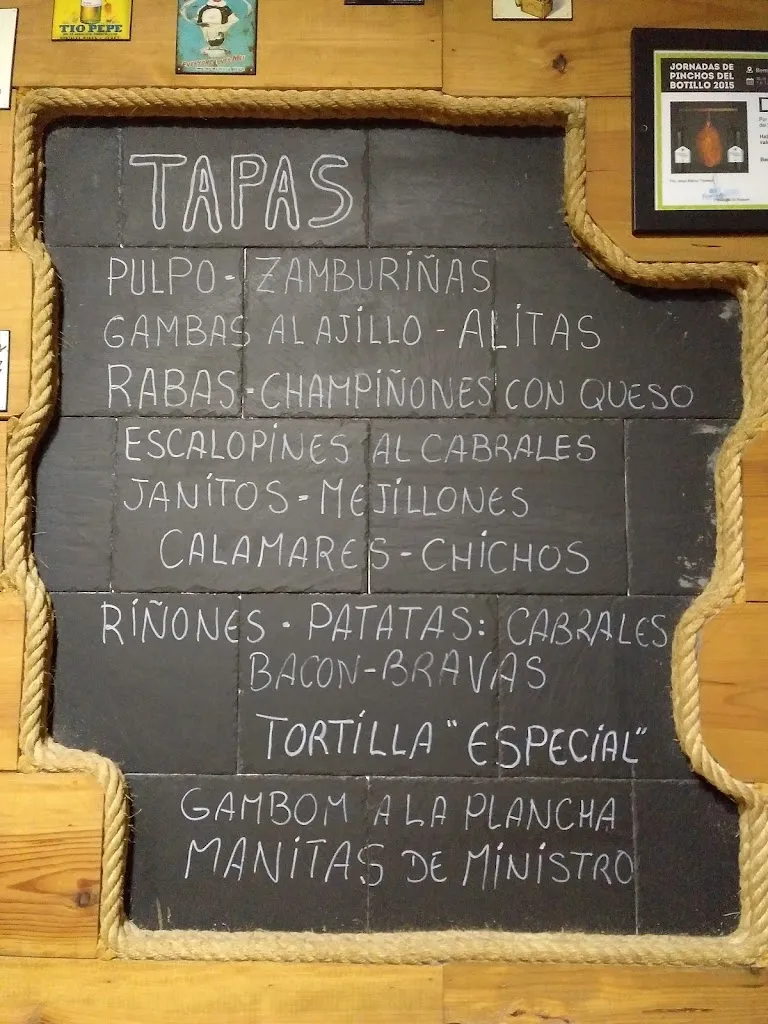 TIO PEPE
JORNADAS DE
PINCHOS DEL
BOTILLO 2015
TAPAS
PULPO - ZAMBURIÑAS
GAMBAS AL AJILLO - ALITAS
RABAS - CHAMPIÑONES CON QUESO
ESCALOPINES AL CABRALES
JANITOS - MEJILLONES
CALAMARES - CHICHOS
RIÑONES - PATATAS: CABRALES
BACON - BRAVAS
TORTILLA "ESPECIAL"
GAMBOM A LA PLANCHA
MANITAS DE MINISTRO